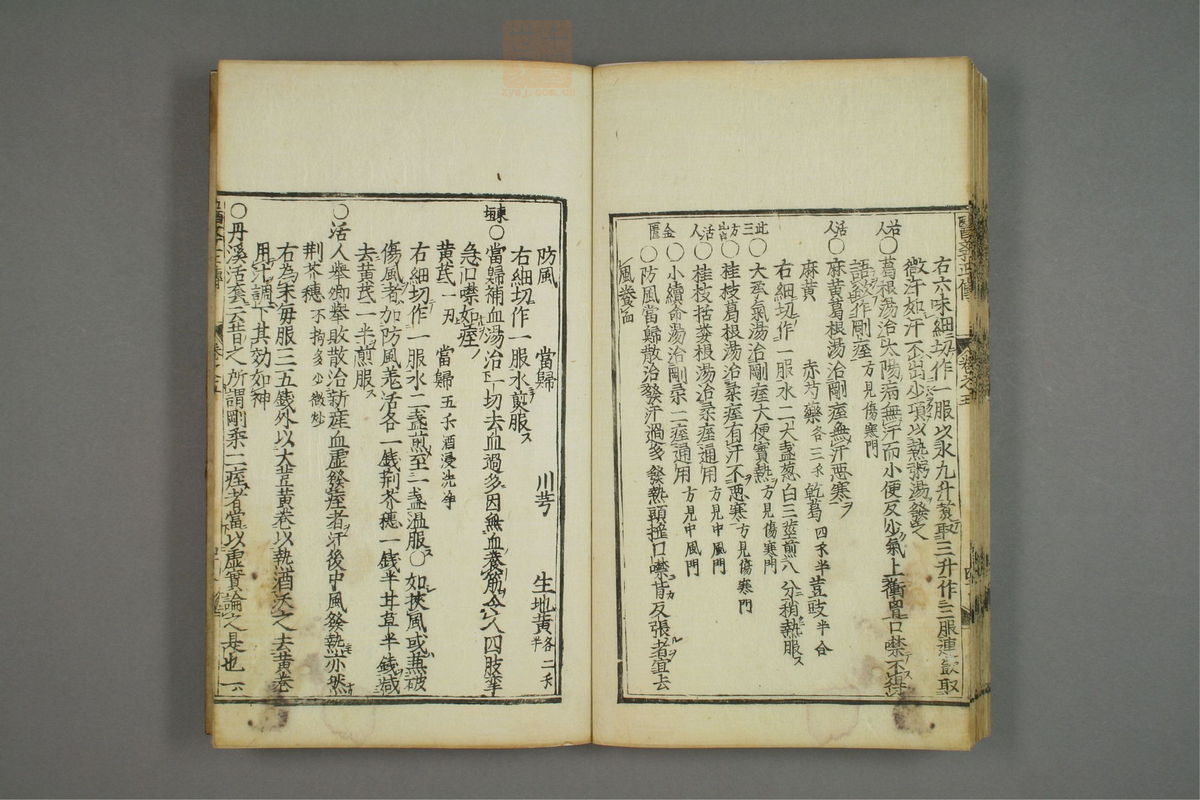 右六味細切作一服以水九升煑取三升作三服連飲取
微汗如汗不出少項以熱粥湯發之
〇葛根湯治太陽病無汗而小便反少氣上衝胷口噤不得
語欲作剛痓方見傷寒門
活人〇麻黄葛根湯治剛痓無汗悪寒
麻黄 赤芍藥各三禾 乾葛四禾半 荳豉半合
右細切作一服水二大盞葱白三莖煎八分稍熱服
〇大承氣湯治剛痓大便實熱方見傷寒門
此三方〇桂枝葛根湯治柔痓有汗不悪寒方見傷寒門
出活人〇桂枝括蔞根湯治柔痓通用方見中風門
〇小續命湯治剛柔二痓通用方見中風門
金匱〇防風當歸散治發汗過多發熱頭揺口噤背反張者宜去
風養血
防風 當歸 川芎 生地黄各二禾半
右細切作一服水煎服
東垣〇當歸補血湯治一切去血過多因無血養筋令人四肢攣
急口噤如痓
黄芪一刃 當歸五禾酒浸洗净
右細切作一服水二盞煎至一盞温服〇如挾風或無破
傷風者加防風羗活各一錢荆芥穗一錢半甘草半錢减
去黄芪一半煎服
〇活人舉卿舉敗散治新産血虚發痓者汗後中風發熱亦然
荆芥穗不拘多少微炒
右為末每服三五錢外以大荳黄卷以熱酒沃之去黄卷
用汁調下其効如神
〇丹溪活套云昔之所謂剛柔二痓者當以虚實論之是也一